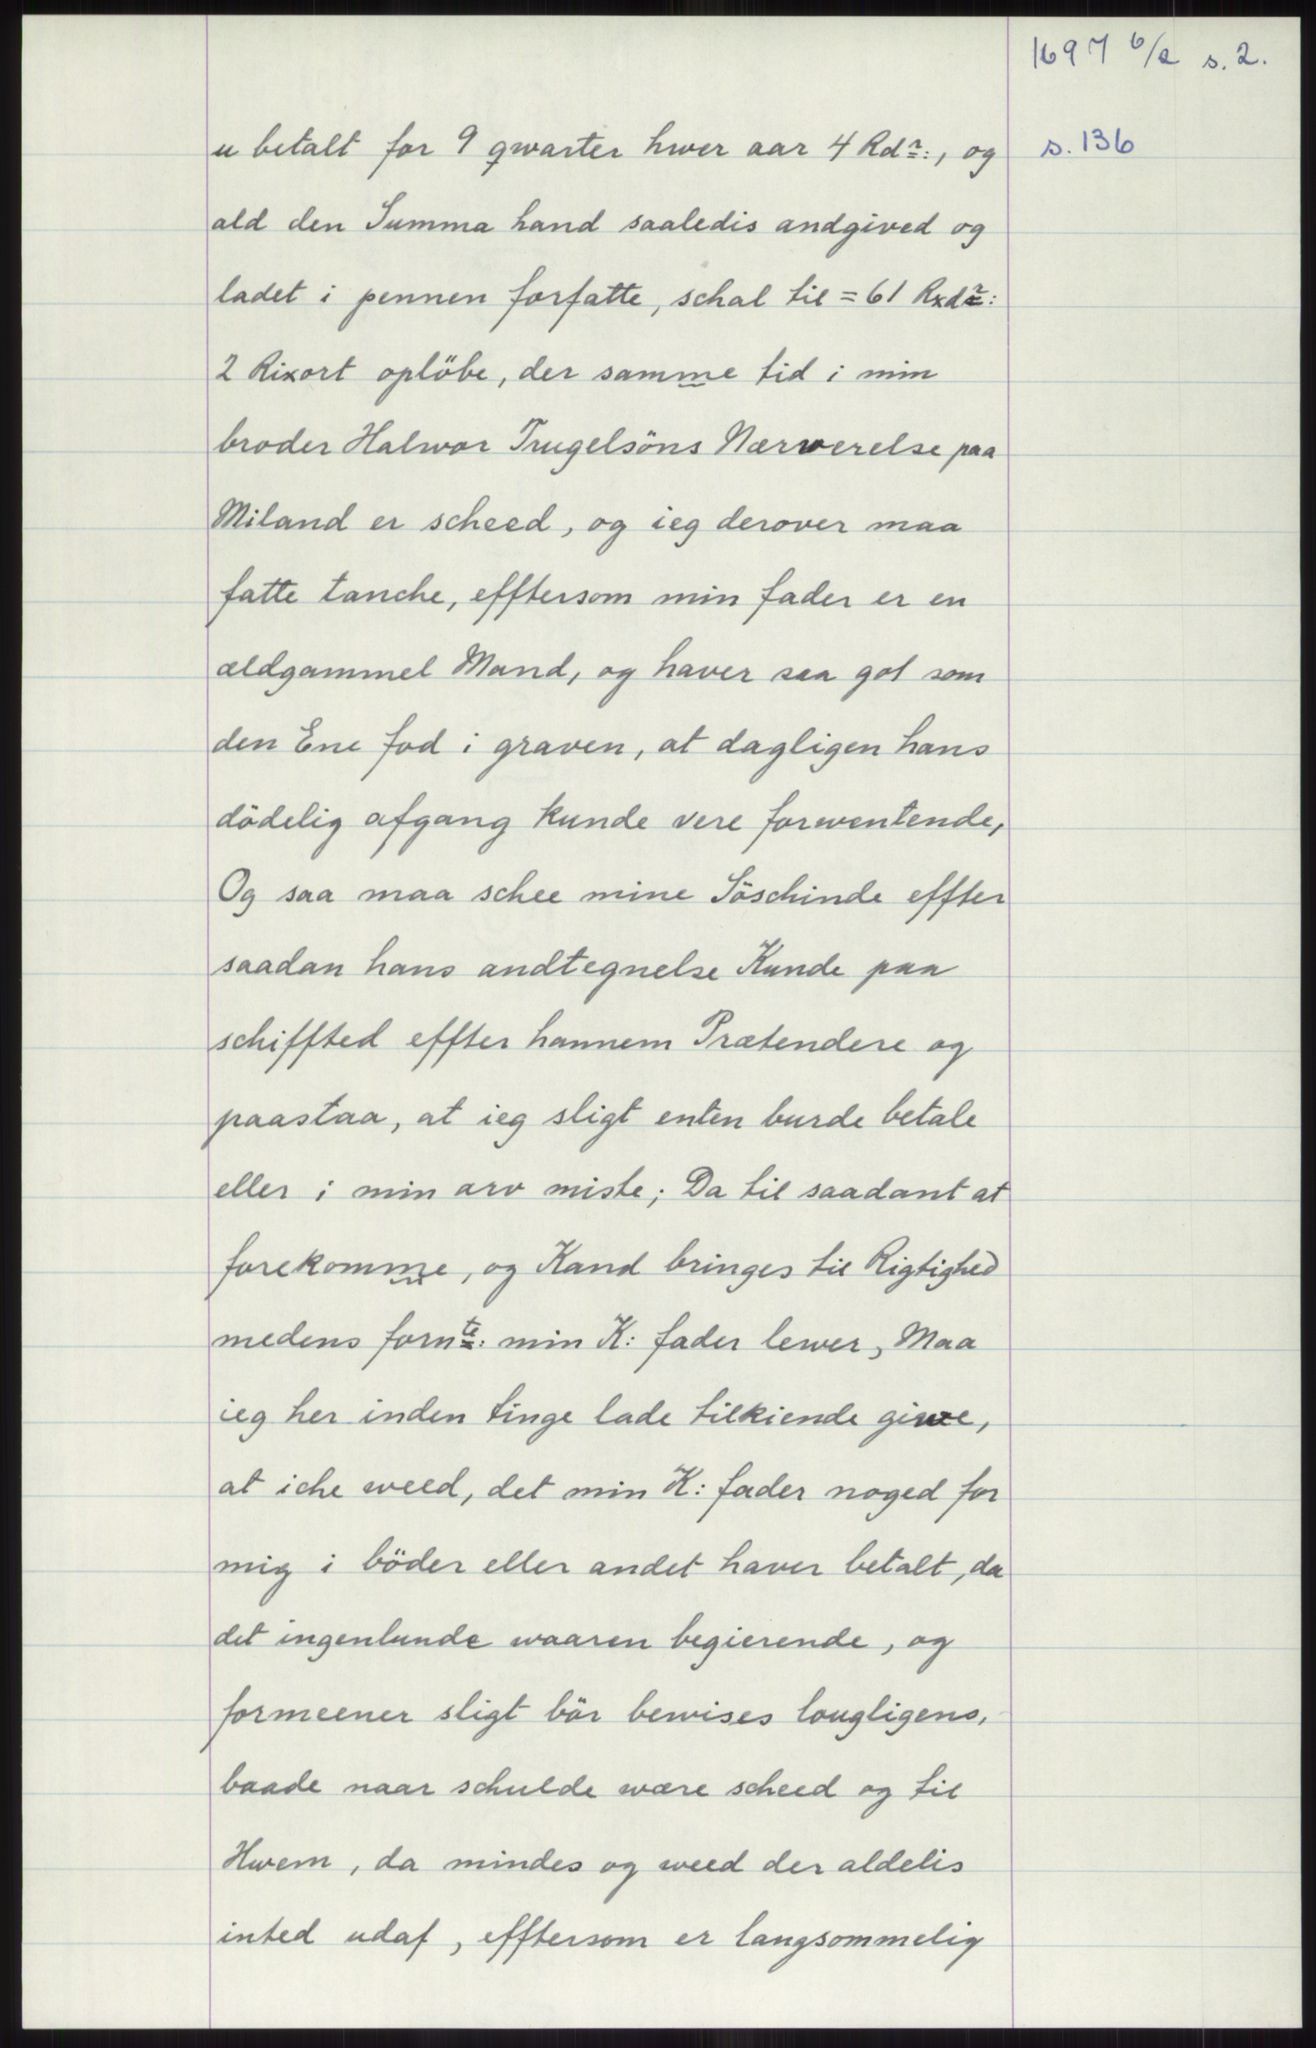 1697 6/2 s. 2.
s. 136
u betalt for 9 qwarter hwer aar 4 Rdr:, og
ald den Summa hand saaledis andgived og
ladet i pennen forfatte, schal til = 61 Rxdr:
2 Rixort oplöbe, der samme tid i min
broder Halwor Trugelsöns Nærwerelse paa
Miland er scheed, og ieg derover maa
fatte tanche, efftersom min fader er en
ældgammel Mand, og haver saa got som
den Ene fod i graven, at dagligen hans
dödelig afgang kunde vere forwentende,
Og saa maa schee mine Söschinde effter
saadan hans andtegnelse Kunde paa
schiffted effter hannem Prætendere og
paastaa, at ieg sligt enten burde betale
eller i min arv miste; Da til saadant at
forekomme, og Kand bringes til Rigtighed
medens fornte: min K: fader lewer, Maa
ieg her inden tinge lade tilkiende giwe,
at iche weed, det min K: fader noged for
mig i böder eller andet haver betalt, da
det ingenlunde waaren begierende, og
formeener sligt bör bewises lougligens,
baade naar schulde wære scheed og til
Hwem, da mindes og weed der aldelis
inted udaf, efftersom er langsommelig